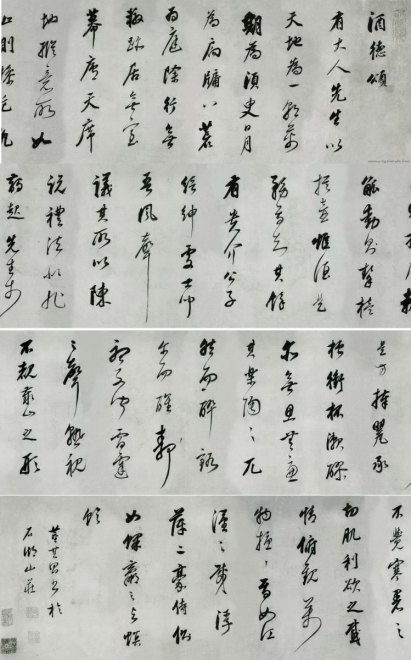 酒德頌
有大人先生以
天地為一朝萬
期為須臾日月
為扃牖八荒
為庭除行無
轍跡居無室
幕天席
地縱意所如
止則操卮執
觚動則挈榼
提壺唯酒是
務焉知其餘
有貴介公子
縉紳處士聞
吾風聲
議其所以陳
說禮法是非
鋒起先生於
是方捧甖承
槽銜杯漱醪
尔無思無慮
其樂陶陶兀
然而醉豁
尔而醒靜
聽不聞雷霆
之聲熟視
不覩泰山之形
不覺寒暑之
切肌利欲之感
情俯觀萬
物擾擾焉如江
漢之載浮
萍二豪侍側
如蜾蠃之與螟
蛉
董其昌書於
石湖山莊